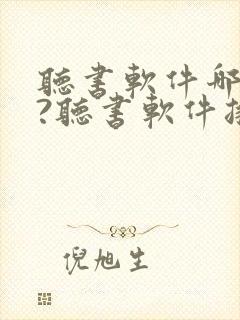 聽書軟件哪
?聽書軟件推
倪旭生